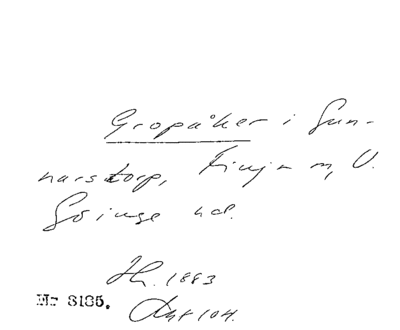 Gropåker i Gun-
narstorp, Finja sn, V.
Göinge hd.
Jh. 1883
Nr 8135. Akt 104.